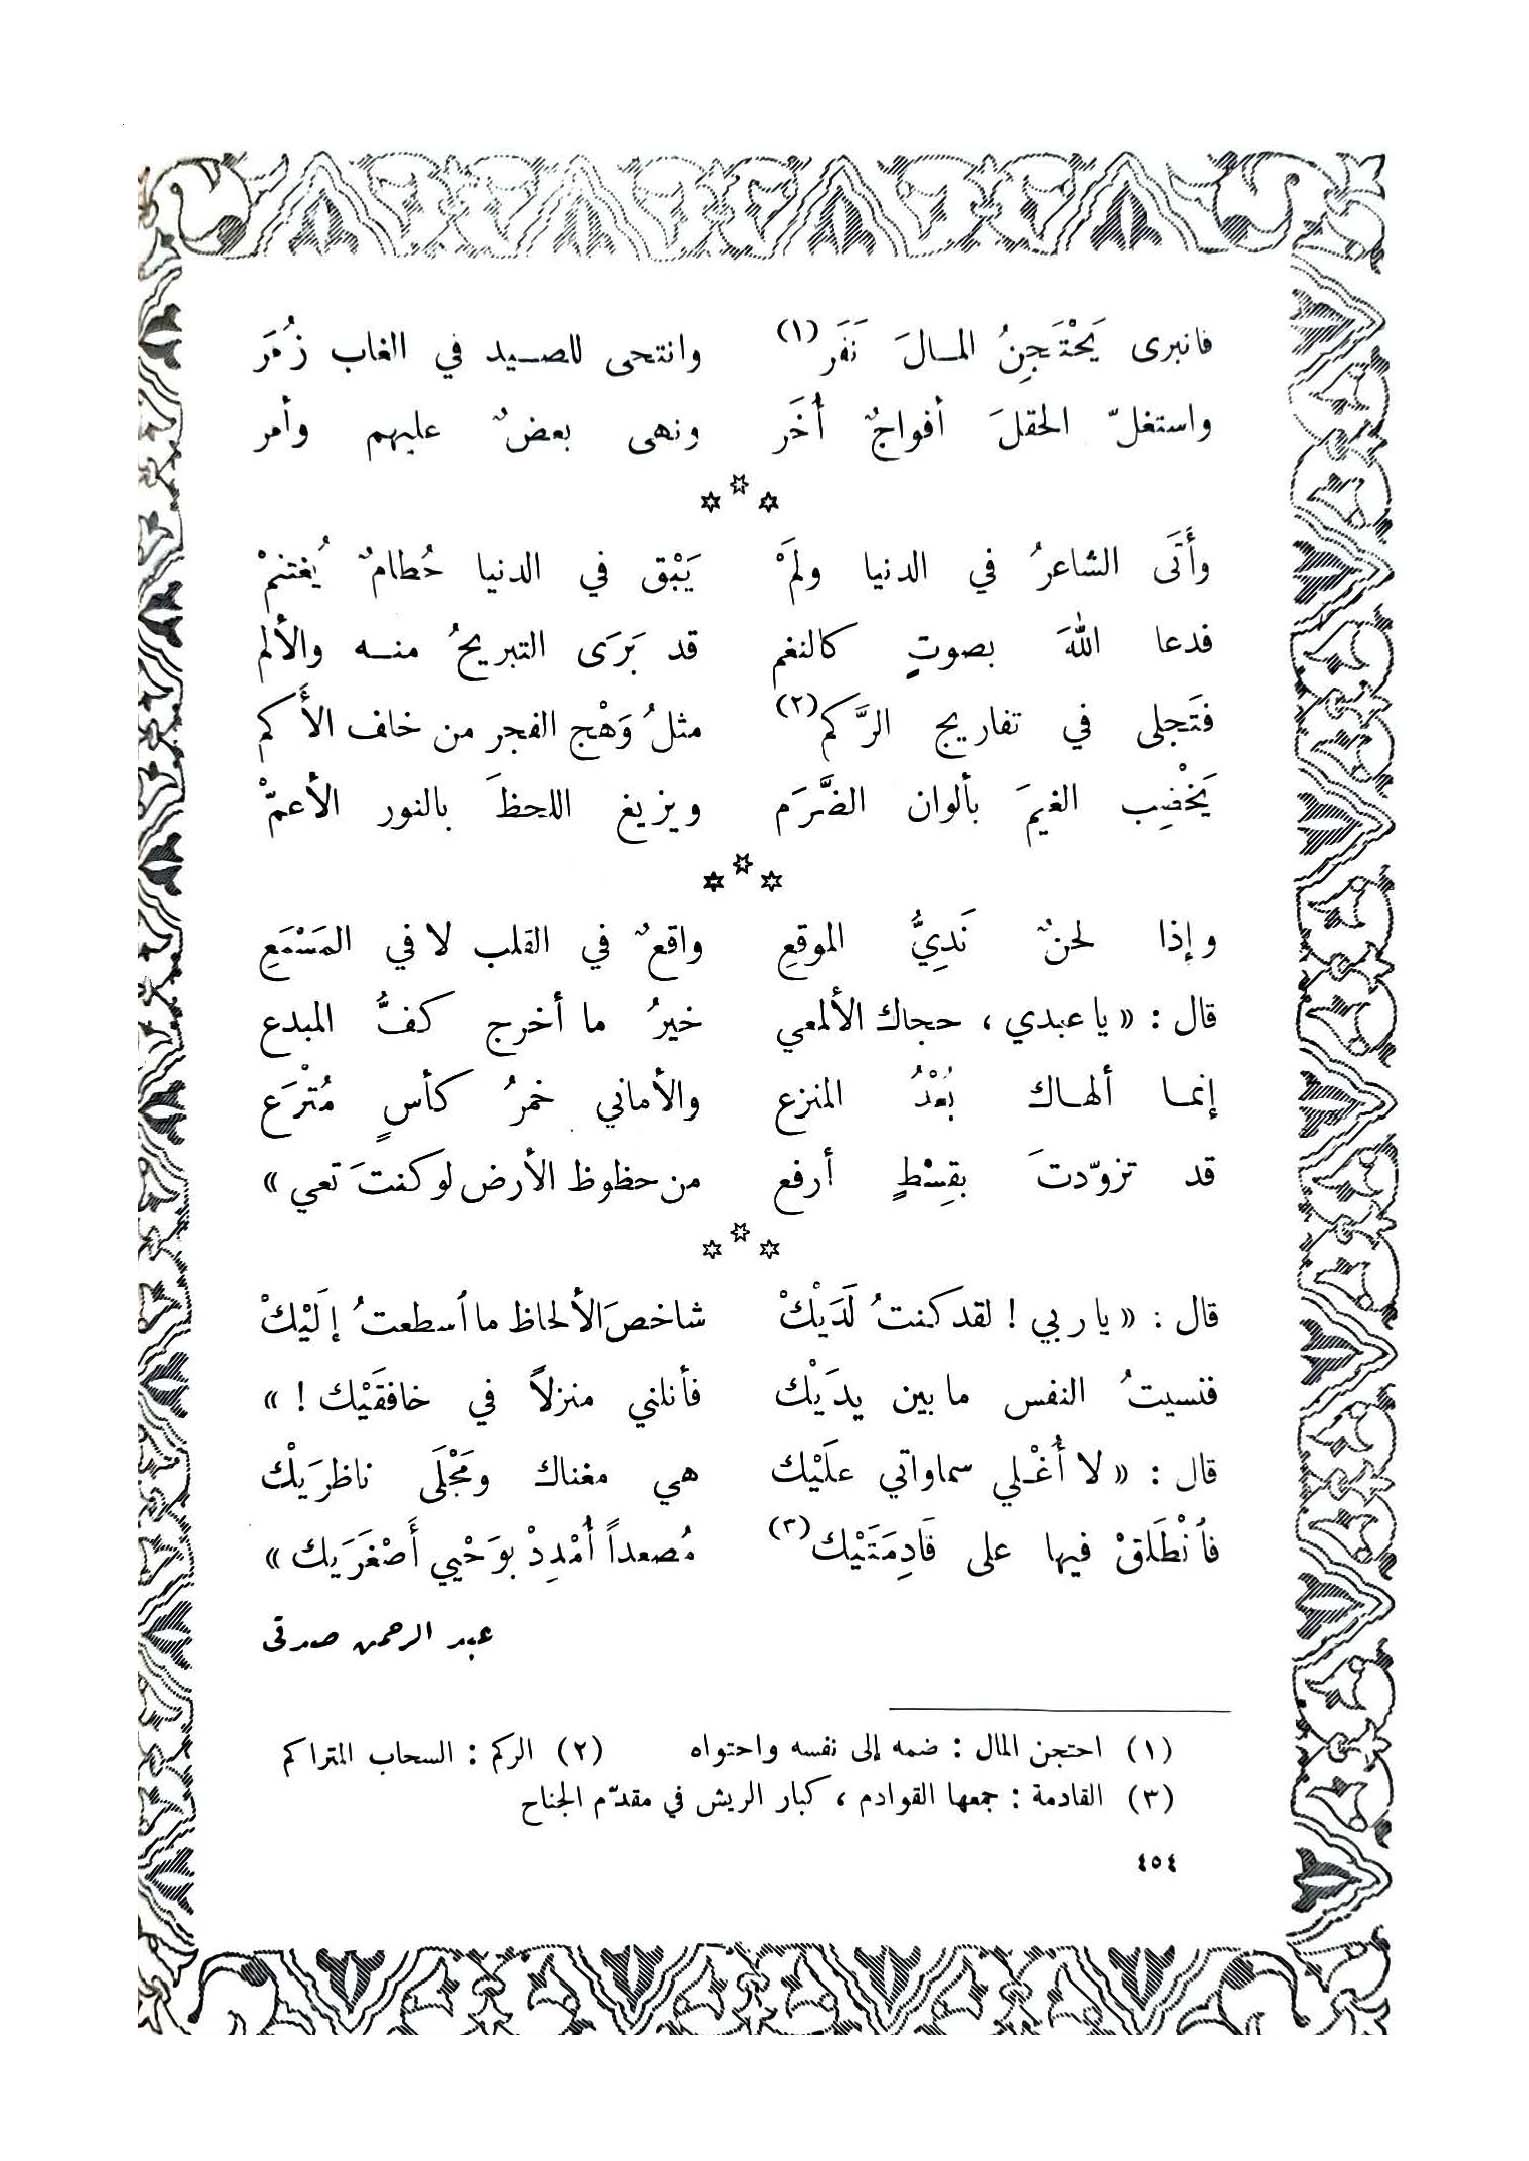 فانبرى يَحْتَجِنُ المالَ نَفَر (١) وانتحى للصيد في الغاب زُمَر
واستغلّ الحقلَ أفواجٌ أُخَر ونهى بعضٌ عليهم وأمر
***
وأَتَى الشاعرُ في الدنيا ولَمْ يَبْق في الدنيا حُطامٌ يُغتنمْ
فدعا اللهَ بصوتٍ كالنغم قد بَرَى التبريحُ منه والألم
فتَجلى في تفاريج الرَّكم (٢) مثلُ وَهْج الفجر من خلف الأَكم
يَخْضِب الغيمَ بألوان الضَّرَم ويزيغ اللحظَ بالنور الأعمّْ
***
وإذا لحنٌ نَدِيُّ الموقعِ واقعٌ في القلب لا في المَسْمَعِ
قال : « يا عبدي ، حجاك الألمعي خيرُ ما أخرج كفُّ المبدع
إنما ألهاك بُعْدُ المنزع والأماني خمرُ كأسٍ مُتْرَع
قد تزوّدتَ بقِسْطٍ أرفع من حظوظ الأرض لو كنتَ تعي »
***
قال : « يا ربي ! لقد كنتُ لَدَيْكْ شاخصَ الألحاظ ما أسطعتُ إلَيْكْ
فنسيتُ النفس ما بين يدَيْك فأنلني منزلاً في خافقَيْك ! »
قال : « لا أُغْلي سماواتي علَيْك هي مغناك ومَجْلَى ناظرَيْك
فأنْطَلقْ فيها على قَادِمَتَيْك (٣) مُصعداً أُمْدِدْ بوَحْيي أَصْغَرَيك »
عبد الرحمن صدقى
(١) احتجن المال : ضمه إلى نفسه واحتواه (٢) الركم : السحاب المتراكم
(٣) القادمة : جمعها القوادم ، كبار الريش في مقدّم الجناح
٤٥٤